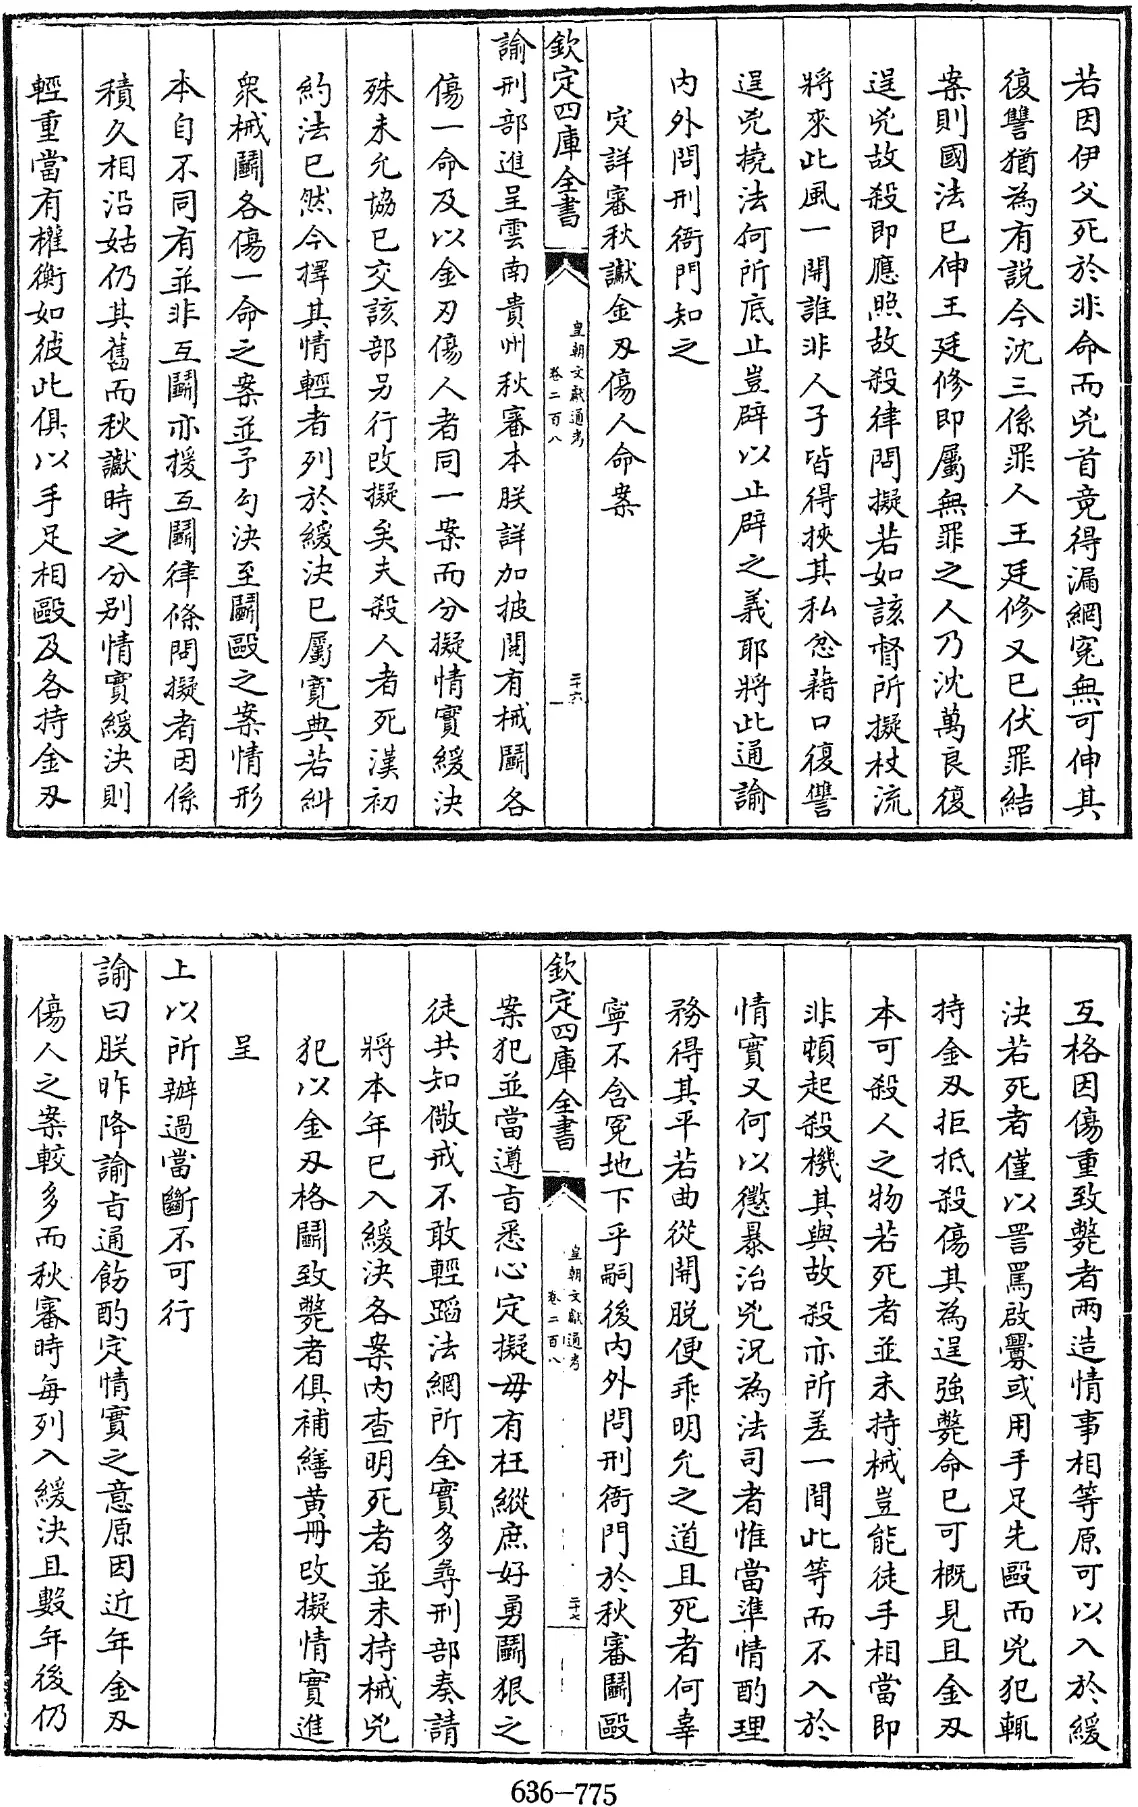 若因伊父死於非命而兇首竟得漏網冤無可伸其
復讐猶為有說今沈三係罪人王廷修又已伏罪結
案則國法已伸王廷修即屬無罪之人乃沈萬良復
逞兇故殺即應照故殺律問擬若如該督所擬杖流
將來此風一開誰非人子皆得挾其私忿藉口復讐
逞兇撓法何所底止豈辟以止辟之義耶將此通諭
內外問刑衙門知之
定詳審秋讞金刃傷人命案
欽定四庫全書
皇朝文獻通考
卷二百八
二十六
諭刑部進呈雲南貴州秋審本朕詳加披閱有械鬭各
傷一命及以金刃傷人者同一案而分擬情實緩決
殊未允協已交該部另行改擬矣夫殺人者死漢初
約法已然今擇其情輕者列於緩決已屬寬典若糾
衆械鬭各傷一命之案並予勾決至鬭毆之案情形
本自不同有並非互鬭亦援互鬭律條問擬者因係
積久相沿姑仍其舊而秋讞時之分別情實緩決則
輕重當有權衡如彼此俱以手足相毆及各持金刃
互格因傷重致斃者兩造情事相等原可以入於緩
決若死者僅以詈罵啟釁或用手足先毆而兇犯輒
持金刃拒抵殺傷其為逞強斃命已可概見且金刃
本可殺人之物若死者並未持械豈能徒手相當即
非頓起殺機其與故殺亦所差一間此等而不入於
情實又何以懲暴治兇況為法司者惟當準情酌理
務得其平若曲從開脫便乖明允之道且死者何辜
寧不含冤地下乎嗣後內外問刑衙門於秋審鬭毆
欽定四庫全書
皇朝文獻通考
卷二百八
二十七
案犯並當遵旨悉心定擬毋有枉縱庶好勇鬭狠之
徒共知儆戒不敢輕蹈法網所全實多尋刑部奏請
將本年已入緩決各案內查明死者並未持械兇
犯以金刃格鬭致斃者俱補繕黃冊改擬情實進
呈
上以所辦過當斷不可行
諭曰朕昨降諭旨通飭酌定情實之意原因近年金刃
傷人之案較多而秋審時每列入緩決且數年後仍
636—775